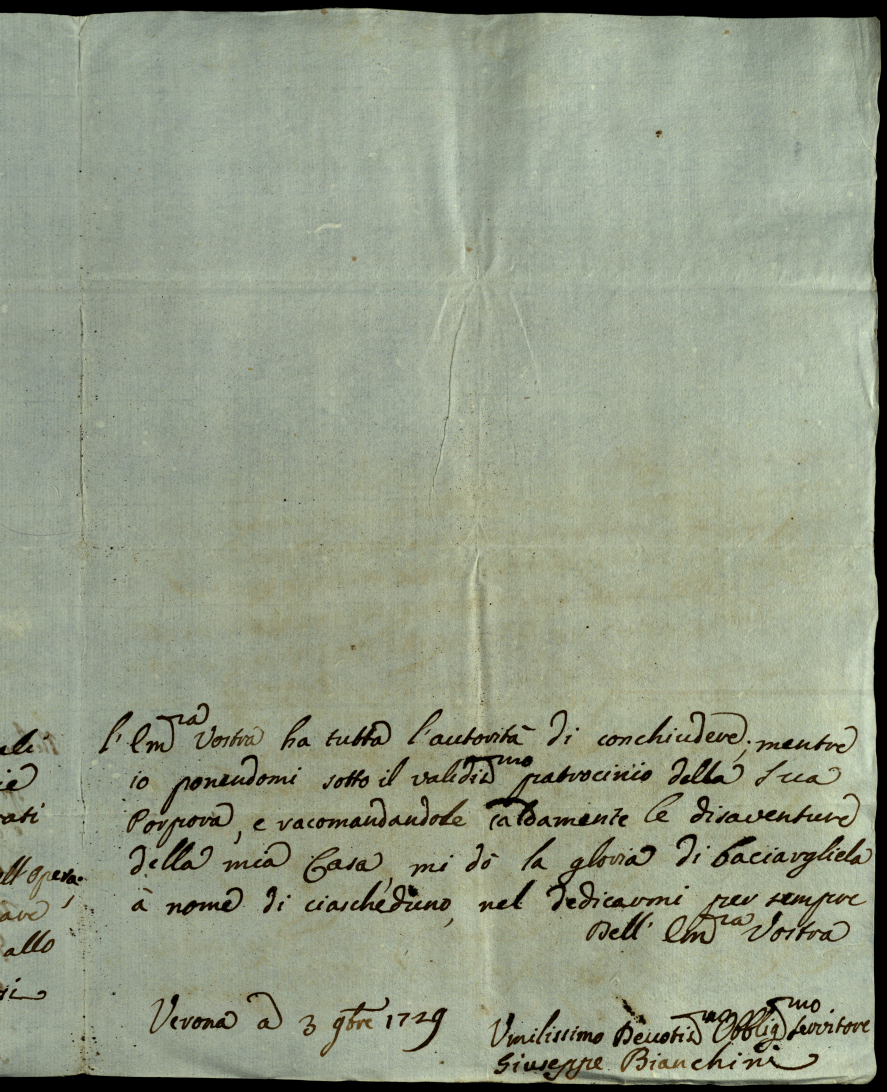 l'Em.ra Vostra ha tutta l'autorità di conchiudere; mentre
io ponendomi sotto il validis.mo patrocinio della Sua
Porpora, e racomandandole caldamente le disaventure
della mia Casa, mi dò la gloria di baciargliela
à nome di ciaschéduno, nel dedicarmi per sempre
Dell' Em.ra Vostra
Verona à 3 9bre 1729
Umilissimo Devotis.mo Obblig.mo Servitore
Giuseppe Bianchini
ali
ie
rati
all'opera;
are
allo
si